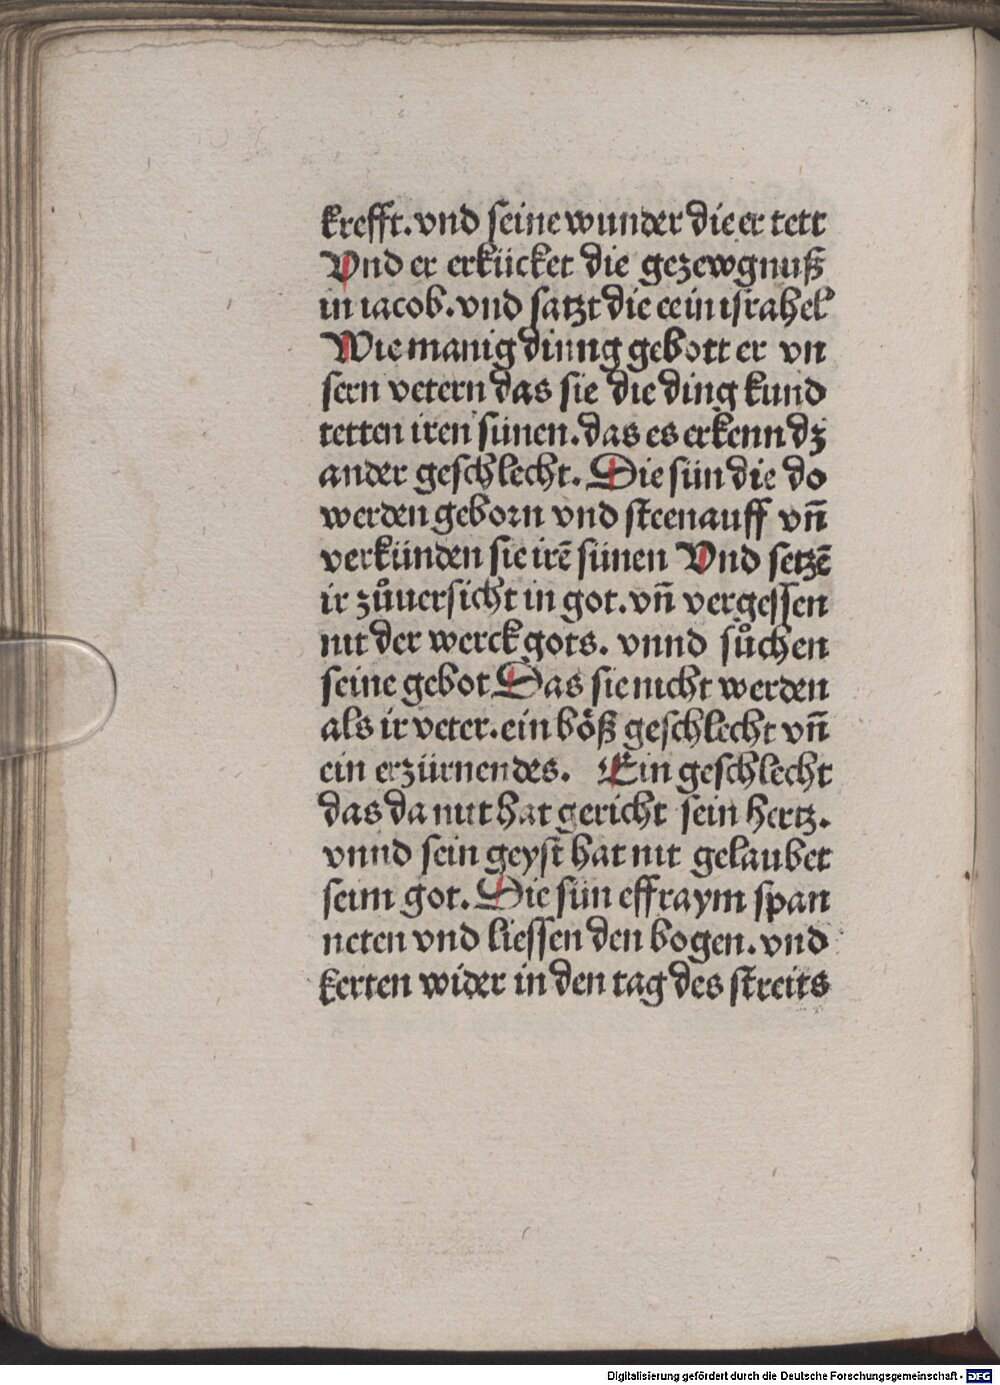 krefft. vnd seine wunder die er tett
Vnd er erkücket die gezewgnuß
in iacob. vnd satzt die ee in israhel
Wie manig dinng gebott er vn
sern vetern das sie die ding kund
tetten iren sünen. das es erkenn dz
ander geschlecht. Die sün die do
werden geborn vnd steen auff vn̄
verkünden sie irē sünen Vnd setzē
ir zůuersicht in got. vn̄ vergessen
nit der werck gots. vnnd sůchen
seine gebot Das sie nicht werden
als ir veter. ein böß geschlecht vn̄
ein erzürnendes. Ein geschlecht
das da nit hat gericht sein hertz.
vnnd sein geyst hat nit gelaubet
seim got. Die sün effraym span
neten vnd liessen den bogen. vnd
kerten wider in den tag des streits
Digitalisierung gefördert durch die Deutsche Forschungsgemeinschaft - DFG